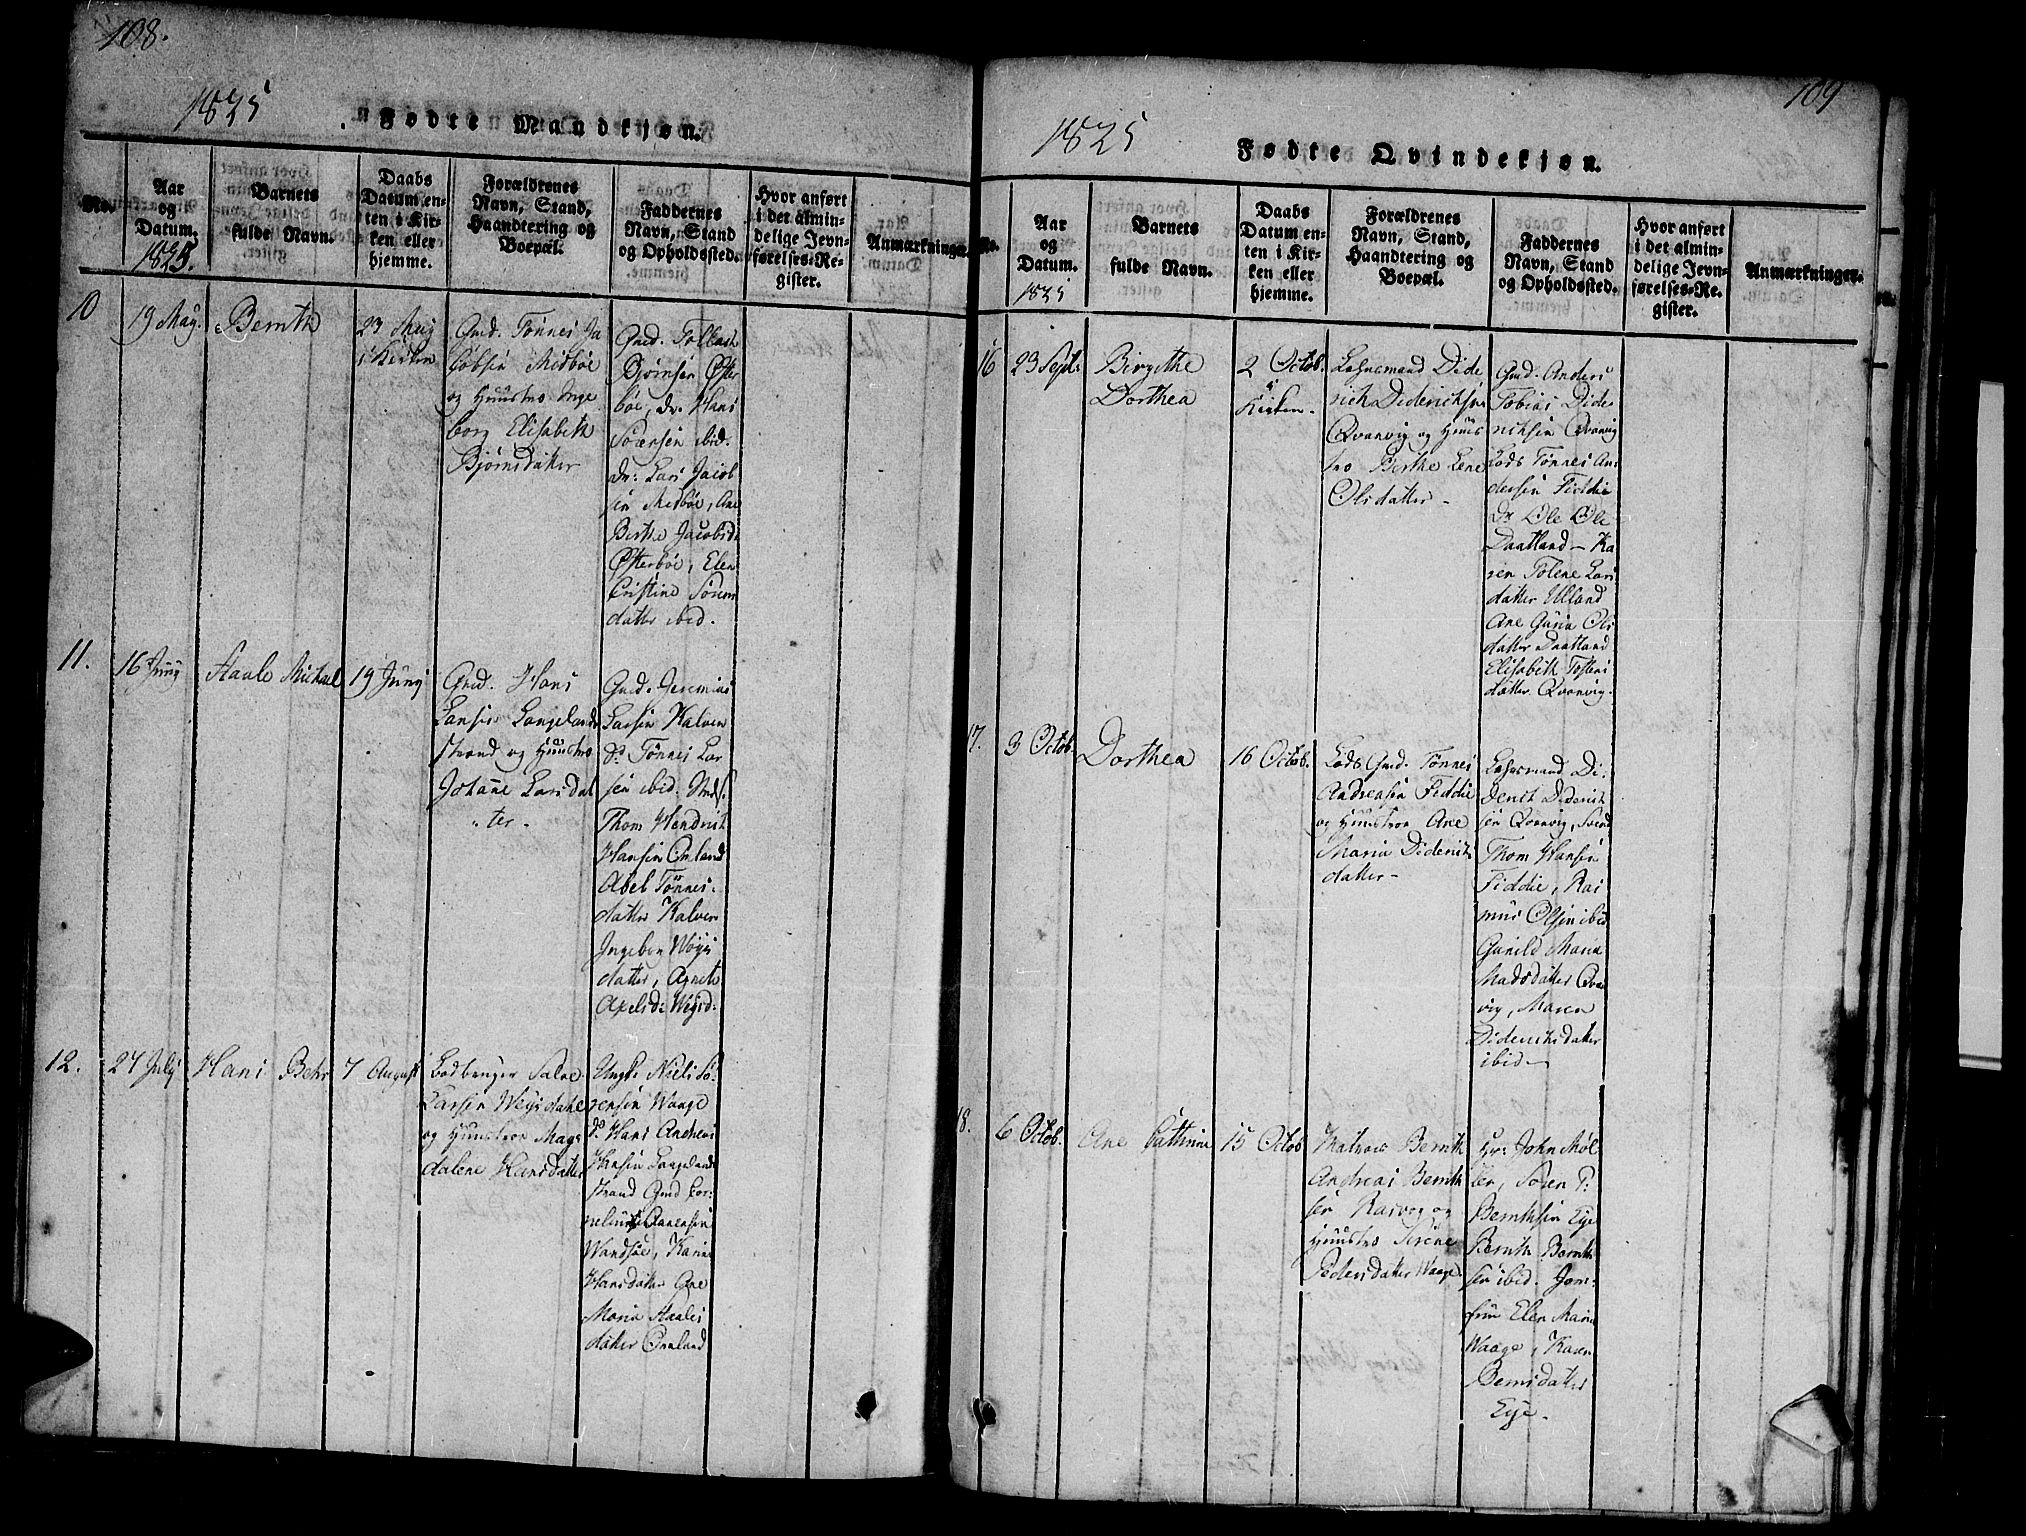 108.
1825
Fødte Mandkjøn.
No.
Aar
og
Datum.
1825.
Barnets
fulde Navn.
Daabs
Datum en-
ten i Kir-
ken eller
hjemme.
Forældrenes
Navn, Stand,
Haandtering og
Boepæl.
Faddernes
Navn, Stand
og Opholdssted.
Hvor anført
i det almin-
delige Jevn-
førelses-Re-
gister.
Anmærkninger.
10
19 May.
Bernth
23 May
i Kirken
Gmd. Tønnes Ja
cobsen Midbøe
og Huustro Inge
borg Elisabeth
Bjørnsdatter
Gmd. Tollach
Bjørnsen Øfter
bøe, do. Hans
Sørensen ibid.
do: Lars Jacob
sen Midbøe, Ane
Berthe Jacobsd:
Øfterbøe, Elen
Cristine Sørens
datter ibid.
11.
16 Juny
Aaale Michael
19 Juny
Gmd. Hans
Larsen Langeland
strand og Huustro
Johane Larsdat
ter.
Gmd. Jeremias
Larsen Kalven
do. Tønnes Lar
sen ibid.
Thom Hendrik
Hansen Omland
Abel Tønnes
datter Kalven
Ingebor
datter, Agnete
Axelsd:
12.
27 July
Hans Behr
7 August
Salve
Larsen
og Huustroe Mag
dalene Hansdatter
Ungk: Niels Sø
rensen Waage
do. Hans Andreas
Hansen Langeland
strand Gmd Cor
nelius
Karen
Hansdatter Ane
Maria Aaales
datter Omland
109
1825
Fødte Qvindekjøn.
No.
Aar
og
Datum.
1825
Barnets
fulde Navn.
Daabs
Datum en-
ten i Kir-
ken eller
hjemme.
Forældrenes
Navn, Stand,
Haandtering og
Boepæl.
Faddernes
Navn, Stand
og Opholdssted.
Hvor anført
i det almin-
delige Jevn-
førelses-Re-
gister.
Anmærkninger.
16
23 Sept:
Birgithe
Dorthea
2 Octob.
i
Kirken
Lehnsmand Dide
rich Diderichsen
Qvanvig og Huus
tro Berthe Lene
Olsdatter
Gmd. Anders
Tobias Dide
richsen Qvanvig
Lods Tønnes An
dersen Fiddie
Do Ole Ole
Daatland - Ka
ren Tolene Lars
datter Ulland
Ane Guria Ols
datter Daatland
Elisabeth Tollas
datter Qvanvig.
17.
3 Octob.
Dorthea
16 Octob.
Lods Gmd. Tønnes
Andreasen Fiddie
og Huustroe Ane
Maria Diderichs
datter
Lehnsmand Di
derich Diderich
sen Qvanvig, Svend
Thom Hansen
Fiddie, Ras
mus Olsen ibid
Gunild Maria
Madsdatter Qvan
vig, Maren
Diderichsdatter
ibid
18.
6 Octob.
Ane Cathrine
15 Octob
Matros Bernth
Andreas Bernth
sen Rasvog og
Huustro Serine
Pedersdatter Waage.
Hr: John Møl
ler, Søren P:
Bernthsen Eye
Bernth Bernth
sen ibid. Jom
fru Elen Maria
Waage, Karen
Berntsdatter
Eye.